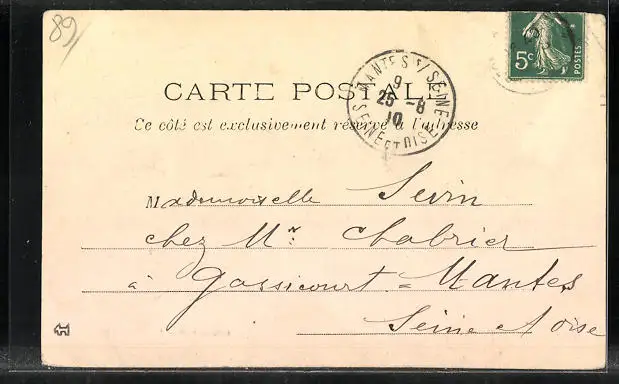 89
5c POSTES
MANTES S/ SEINE
9
25 -8
10
SEINE ET OISE
CARTE POSTALE
Ce côté est exclusivement réservé à l'adresse
Mademoiselle Sevin
chez Mr Chabrier
à Gassicourt - Mantes
Seine et Oise